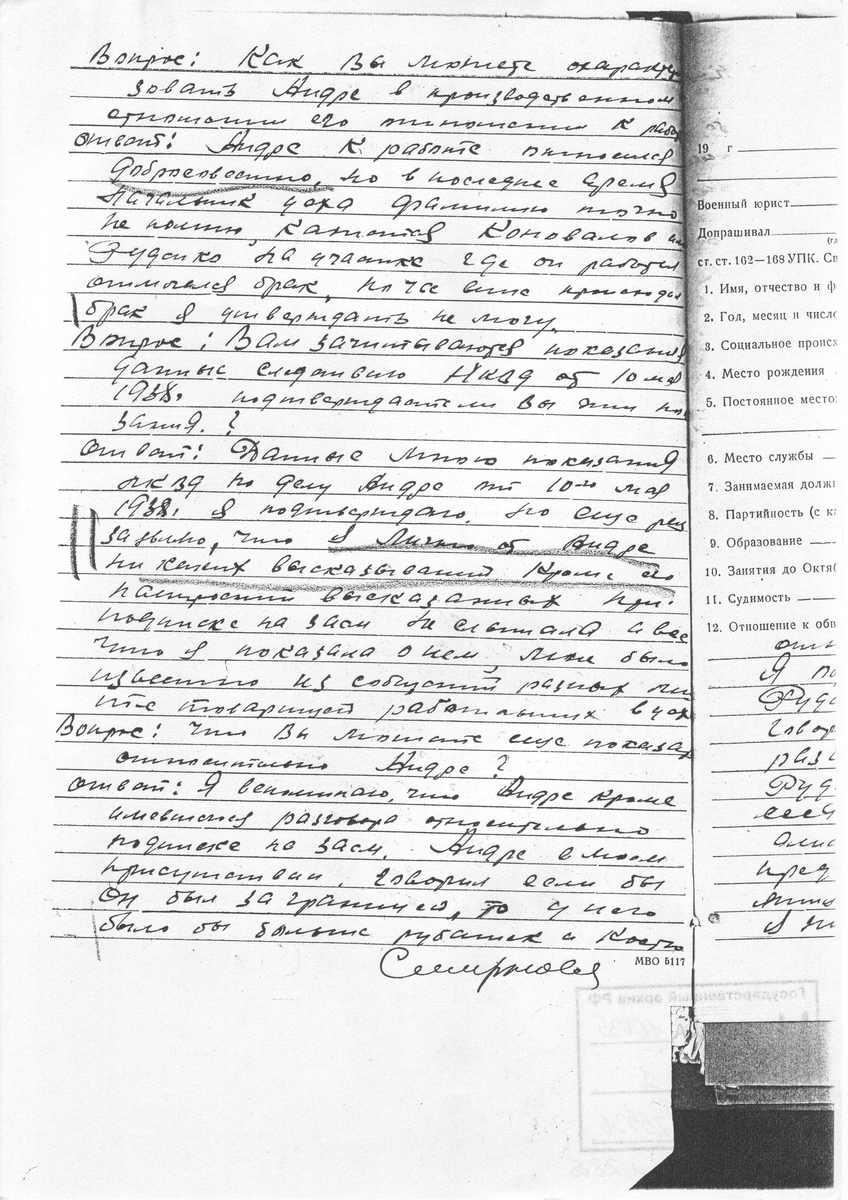 Вопрос: Как Вы можете охаракте
зовать Андре в производственном
отношении его отношении к рабо
Ответ: Андре к работе относился
добросовестно, но в последнее время
начальник цеха фамилию точно
не помню, кажется Коновалов или
Руденко на участке где он работал
отмечался брак, по чьей вине происходил
брак я утверждать не могу.
Вопрос: Вам зачитываются показания
данные следствию НКВД от 10 мая
1938г подтверждаете ли Вы эти пока
зания?
Ответ: Данные мною показания
НКВД по делу Андре от 10-го мая
1938г я подтверждаю. Но еще раз
заявляю, что я лично от Андре
ни каких высказываний кроме его
настроений высказанных при
подписке на заем не слышала а все
что я показала о нем, мне было
известно из сообщений разных лиц
т-е товарищей работающих в цехе
Вопрос: Что Вы можете еще показать
относительно Андре?
Ответ: Я вспоминаю, что Андре кроме
имевшегося разговора относительно
подписке на заем. Андре в моем
присутствии, говорил если бы
он был за границей, то у него
было бы больше рубашек и костю
Смирнова
МВО 5117
19 г
Военный юрист
Допрашивал
ст. ст. 162—168 УПК. Св
1. Имя, отчество и ф
2. Год, месяц и число
3. Социальное происх
4. Место рождения
5. Постоянное место
6. Место службы
7. Занимаемая должн
8. Партийность (с ка
9. Образование
10. Занятия до Октяб
11. Судимость
12. Отношение к обв
Я по
Руде
Говор
разг
Руд
пред
Государственный архив РФ